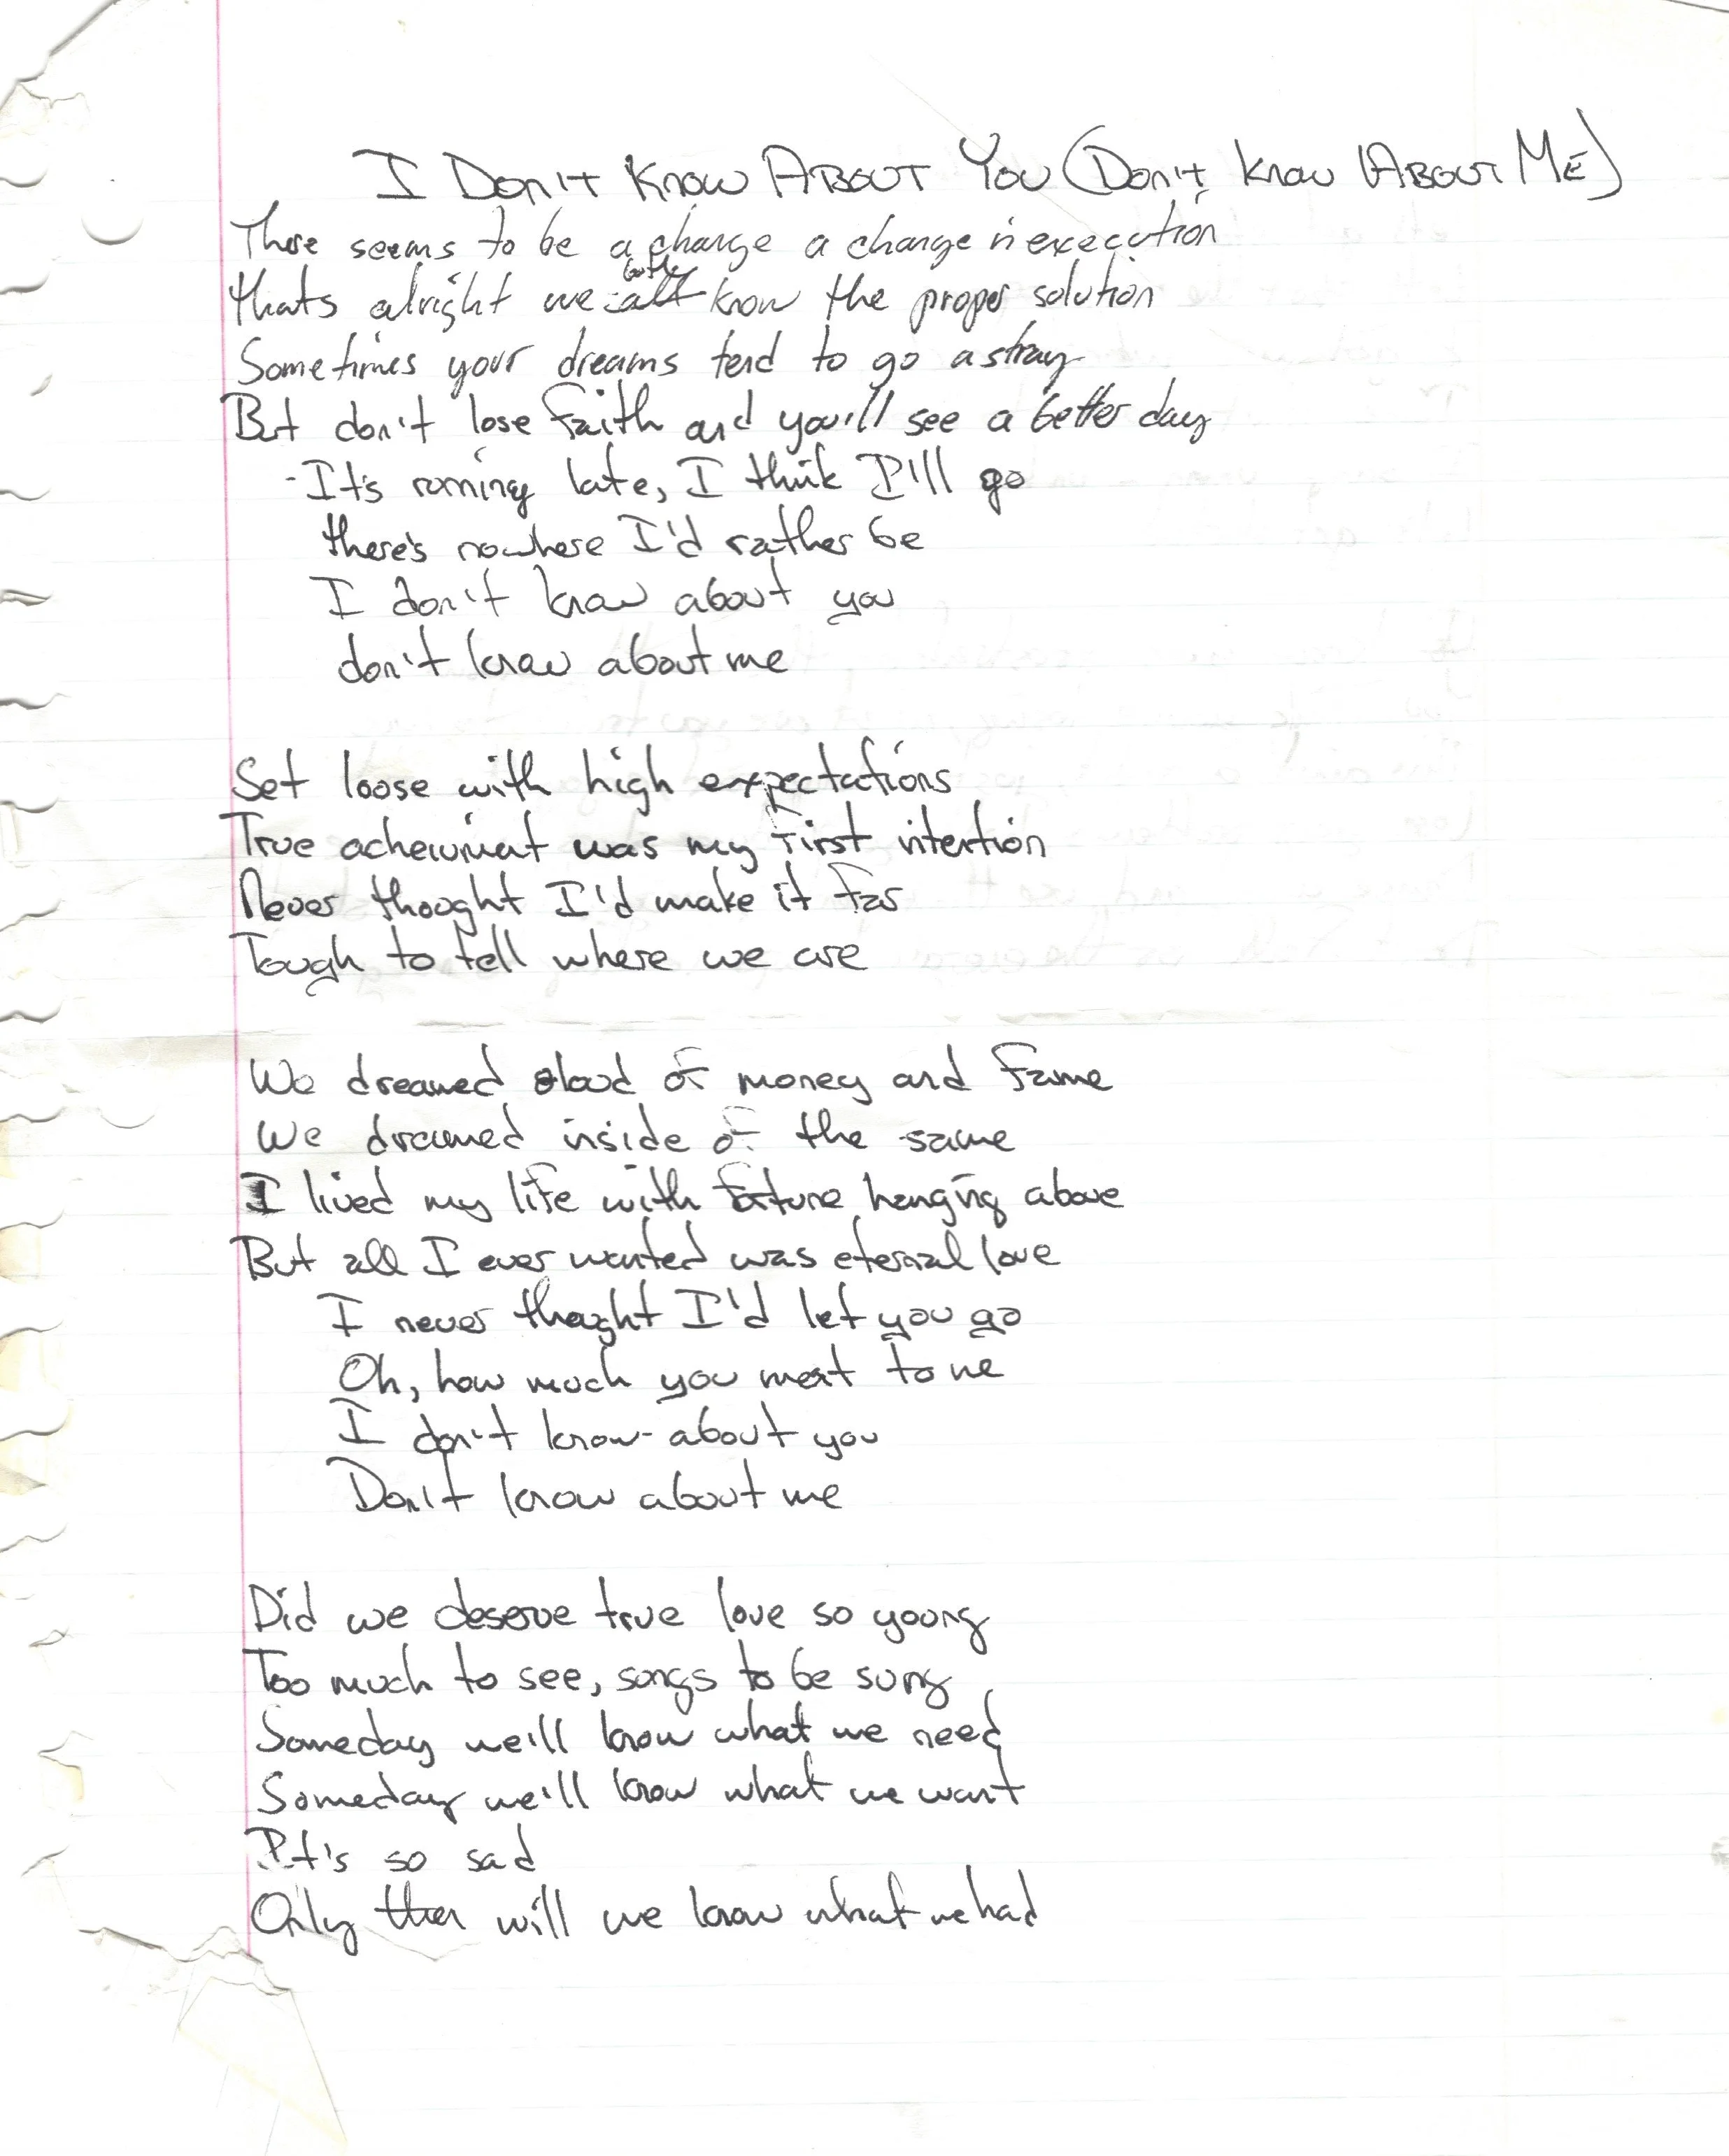 I DON'T KNOW ABOUT YOU (DON'T KNOW ABOUT ME)
There seems to be a change a change in execution
thats alright we both all know the proper solution
Sometimes your dreams tend to go astray
But don't lose faith and you'll see a better day
- It's running late, I think I'll go
there's nowhere I'd rather be
I don't know about you
don't know about me
Set loose with high expectations
True acheivmeat was my first intention
Never thought I'd make it far
Tough to tell where we are
We dreamed aloud of money and fame
We dreamed inside of the same
I lived my life with fortune hanging above
But all I ever wanted was eternal love
I never thought I'd let you go
Oh, how much you meat to me
I don't know about you
Don't know about me
Did we deserve true love so young
Too much to see, songs to be sung
Someday we'll know what we need
Someday we'll know what we want
It's so sad
Only then will we know what we had